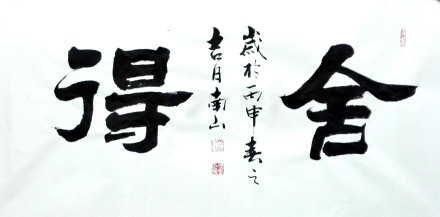 舍
得
歲於丙申春之
吉日南山